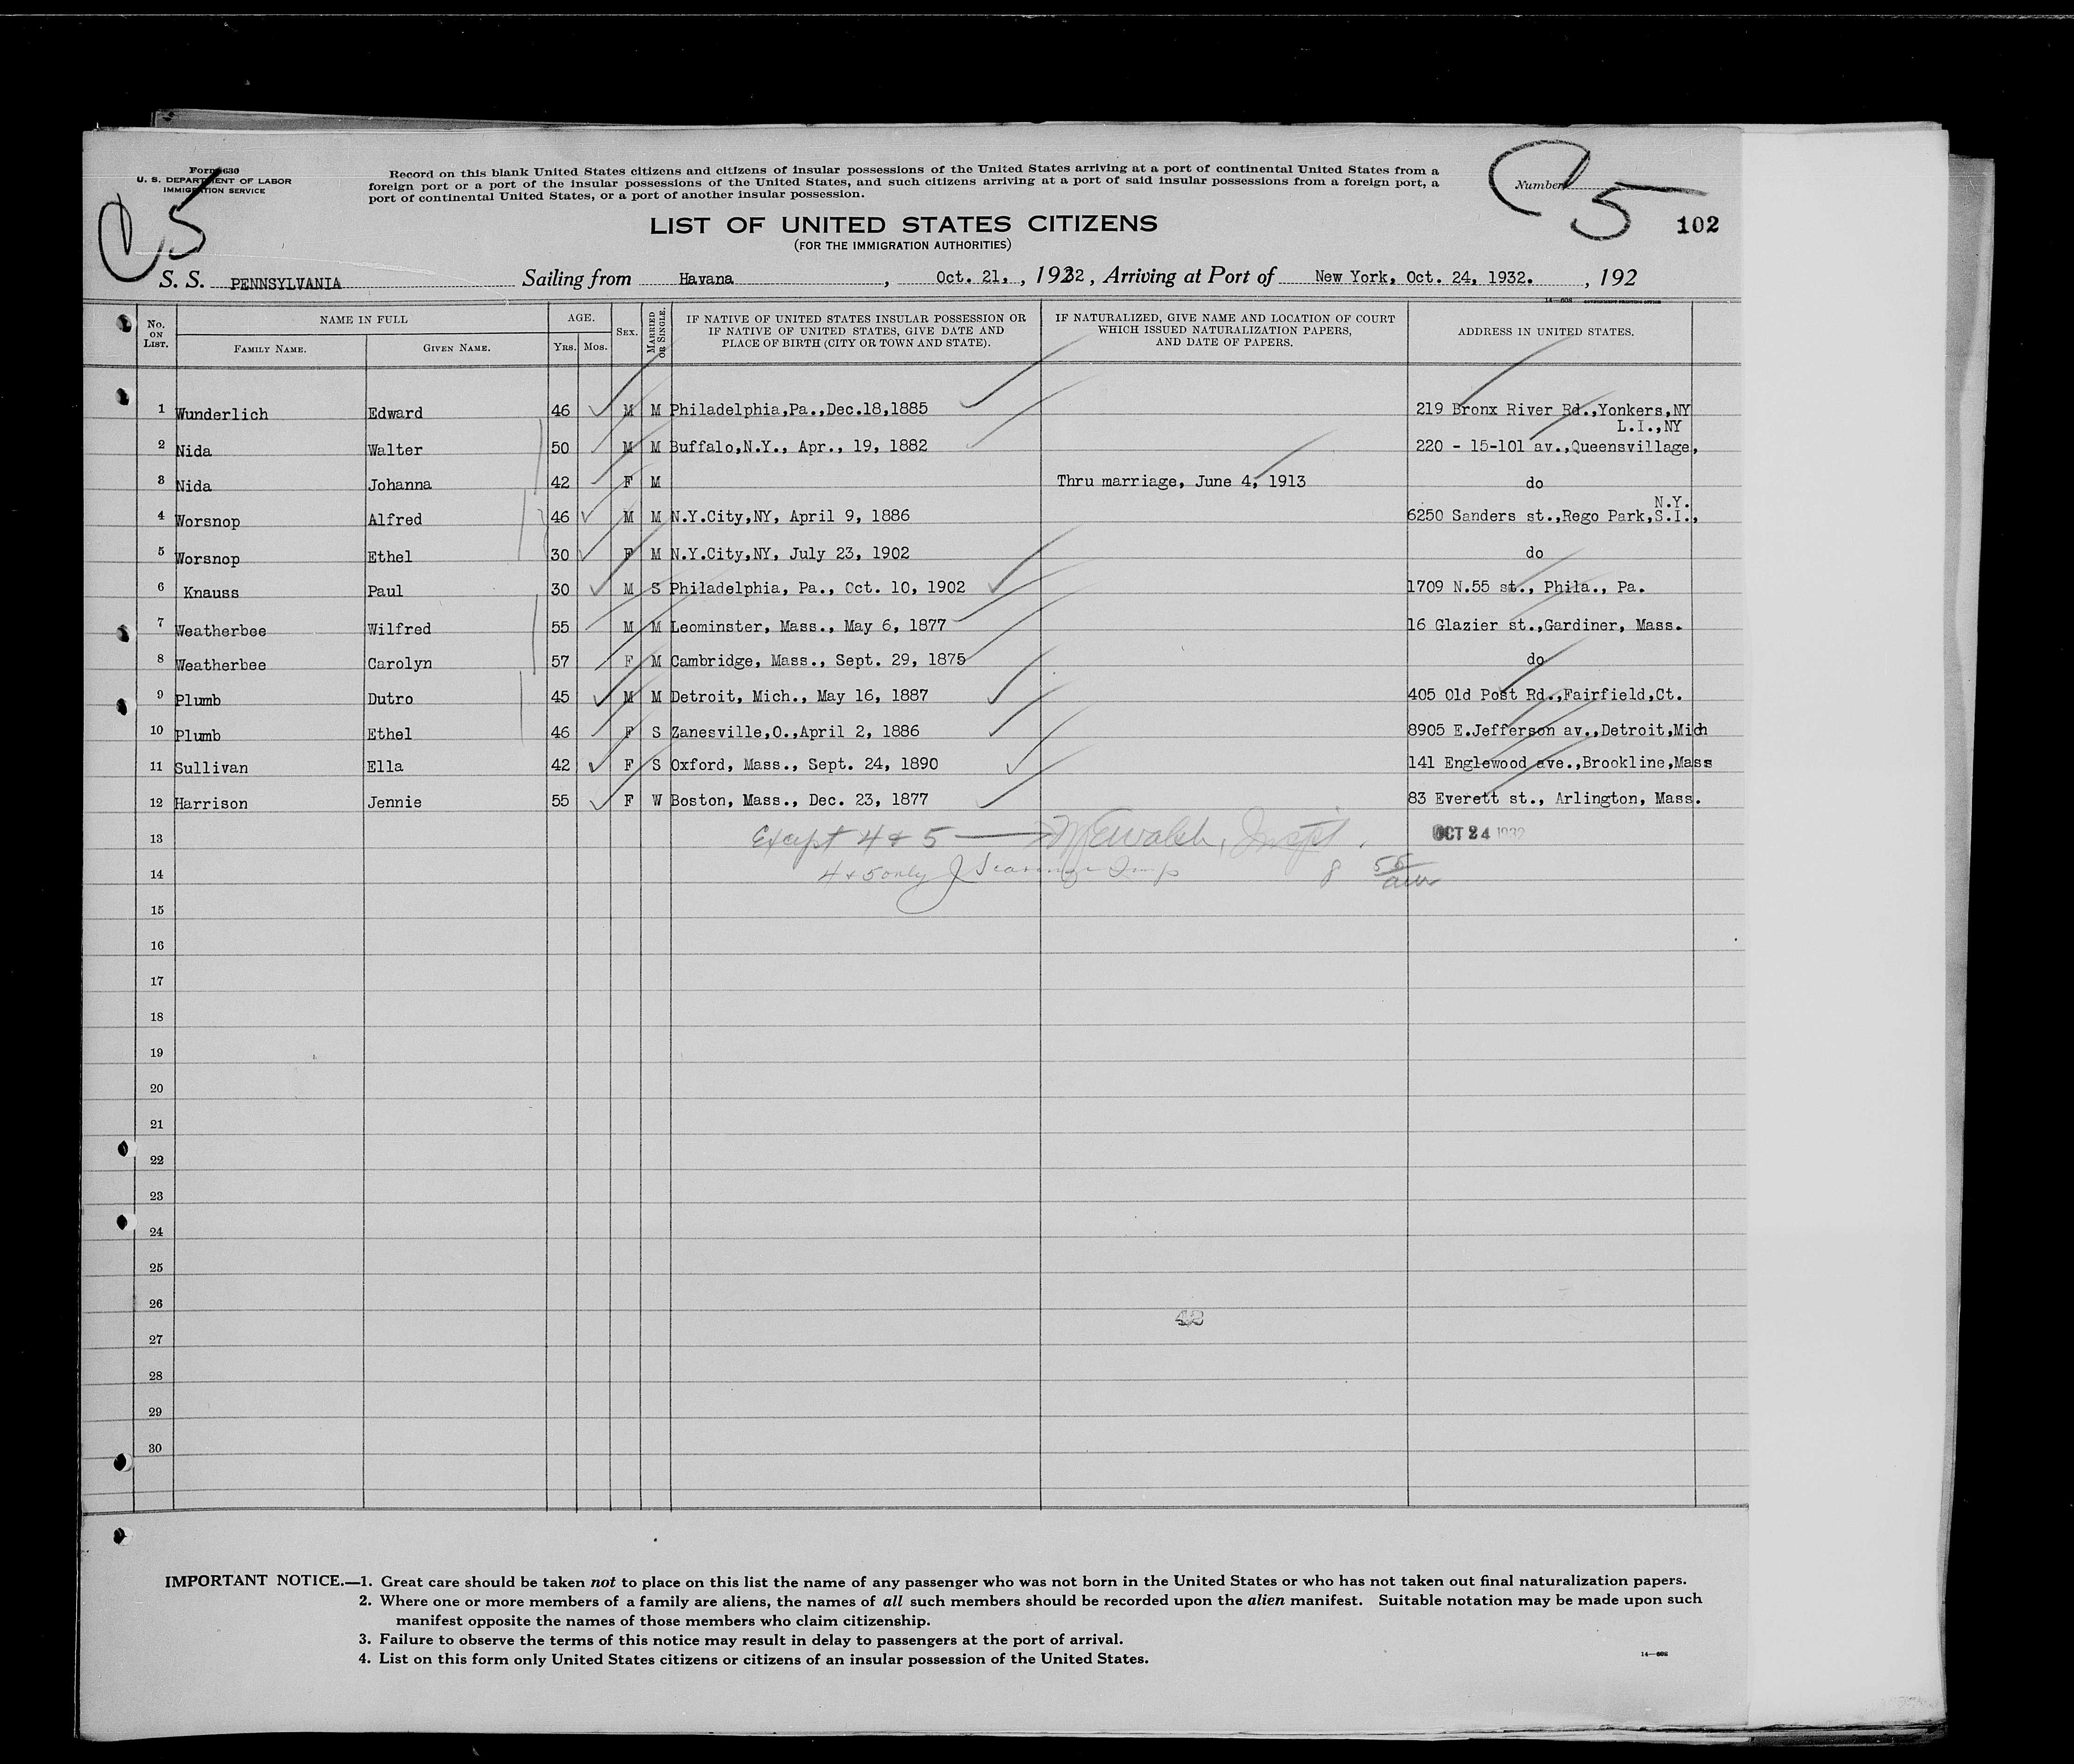 Form 630
U. S. DEPARTMENT OF LABOR
IMMIGRATION SERVICE
Record on this blank United States citizens and citizens of insular possessions of the United States arriving at a port of continental United States from a
foreign port or a port of the insular possessions of the United States, and such citizens arriving at a port of said insular possessions from a foreign port, a
port of continental United States, or a port of another insular possession.
Number
5
5
102
LIST OF UNITED STATES CITIZENS
(FOR THE IMMIGRATION AUTHORITIES)
S. S. PENNSYLVANIA Sailing from Havana, Oct. 21, , 1932, Arriving at Port of New York, Oct. 24, 1932. , 192
14—608 GOVERNMENT PRINTING OFFICE
No. ON LIST. NAME IN FULL FAMILY NAME. GIVEN NAME. AGE. YRS. MOS. SEX. MARRIED OR SINGLE. IF NATIVE OF UNITED STATES INSULAR POSSESSION OR IF NATIVE OF UNITED STATES, GIVE DATE AND PLACE OF BIRTH (CITY OR TOWN AND STATE). IF NATURALIZED, GIVE NAME AND LOCATION OF COURT WHICH ISSUED NATURALIZATION PAPERS, AND DATE OF PAPERS. ADDRESS IN UNITED STATES.
1 Wunderlich Edward 46 M M Philadelphia,Pa.,Dec.18,1885 219 Bronx River Rd.,Yonkers,NY
L.I.,NY
2 Nida Walter 50 M M Buffalo,N.Y., Apr., 19, 1882 220 - 15-101 av.,Queensvillage,
3 Nida Johanna 42 F M Thru marriage, June 4, 1913 do
N.Y.
4 Worsnop Alfred 46 M M N.Y.City,NY, April 9, 1886 6250 Sanders st.,Rego Park,S.I.,
5 Worsnop Ethel 30 F M N.Y.City,NY, July 23, 1902 do
6 Knauss Paul 30 M S Philadelphia, Pa., Oct. 10, 1902 1709 N.55 st., Phila., Pa.
7 Weatherbee Wilfred 55 M M Leominster, Mass., May 6, 1877 16 Glazier st.,Gardiner, Mass.
8 Weatherbee Carolyn 57 F M Cambridge, Mass., Sept. 29, 1875 do
9 Plumb Dutro 45 M M Detroit, Mich., May 16, 1887 405 Old Post Rd.,Fairfield,Ct.
10 Plumb Ethel 46 F S Zanesville,O.,April 2, 1886 8905 E.Jefferson av.,Detroit,Mich
11 Sullivan Ella 42 F S Oxford, Mass., Sept. 24, 1890 141 Englewood ave.,Brookline,Mass
12 Harrison Jennie 55 F W Boston, Mass., Dec. 23, 1877 83 Everett st., Arlington, Mass.
13 Except 4 & 5 Walsh, Inspt. OCT 24 1932
14 4 & 5 only J Insp 8 55
15
16
17
18
19
20
21
22
23
24
25
26
42
27
28
29
30
IMPORTANT NOTICE.—1. Great care should be taken not to place on this list the name of any passenger who was not born in the United States or who has not taken out final naturalization papers.
2. Where one or more members of a family are aliens, the names of all such members should be recorded upon the alien manifest. Suitable notation may be made upon such
manifest opposite the names of those members who claim citizenship.
3. Failure to observe the terms of this notice may result in delay to passengers at the port of arrival.
4. List on this form only United States citizens or citizens of an insular possession of the United States.
14—608